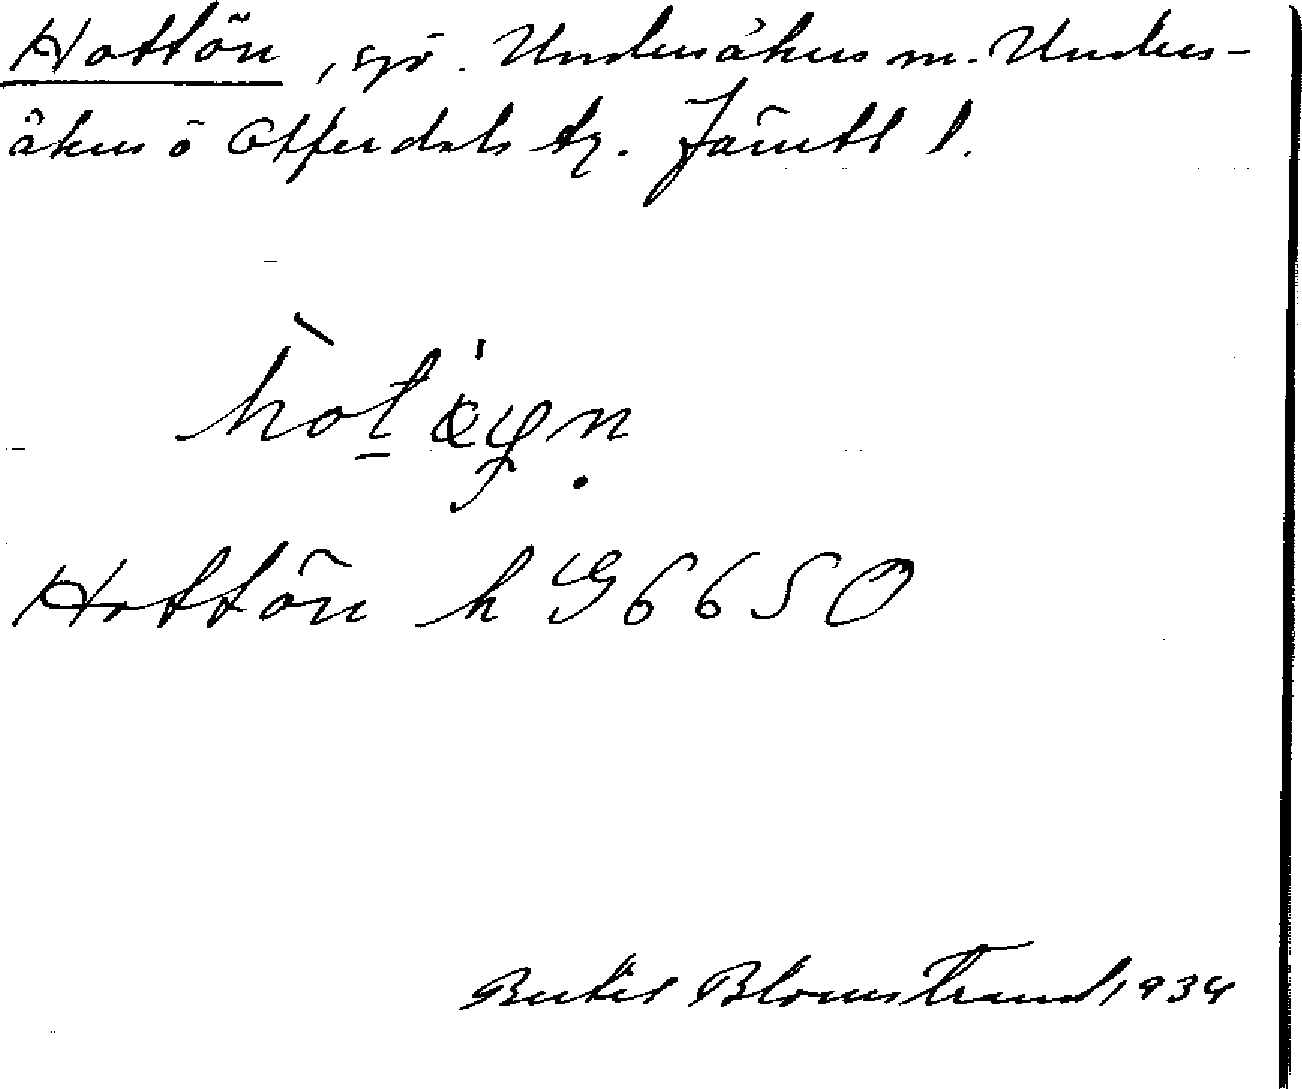 Hottön, sjö. Undersåkers sn. Unders-
åkers o Offerdals tg. Jämtl l.
Hottön k G 6650
Bertil Blomstrand 1934